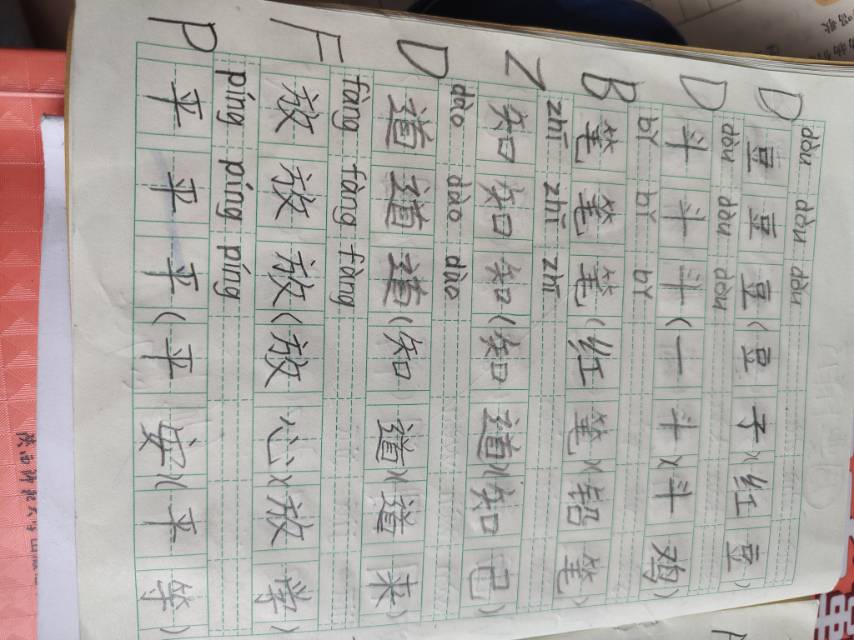 dòu dòu dòu
D 豆 豆 豆(豆子)(红豆)
dòu dòu dòu
D 斗 斗 斗(一斗)(斗鸡)
bǐ bǐ bǐ
B 笔 笔 笔(红笔)(铅笔)
zhī zhī zhī
Z 知 知 知(知道)(知己)
dào dào dào
D 道 道 道(知道)(道来)
fàng fàng fàng
F 放 放 放(放心)(放学)
píng píng píng
P 平 平 平(平安)(平等)